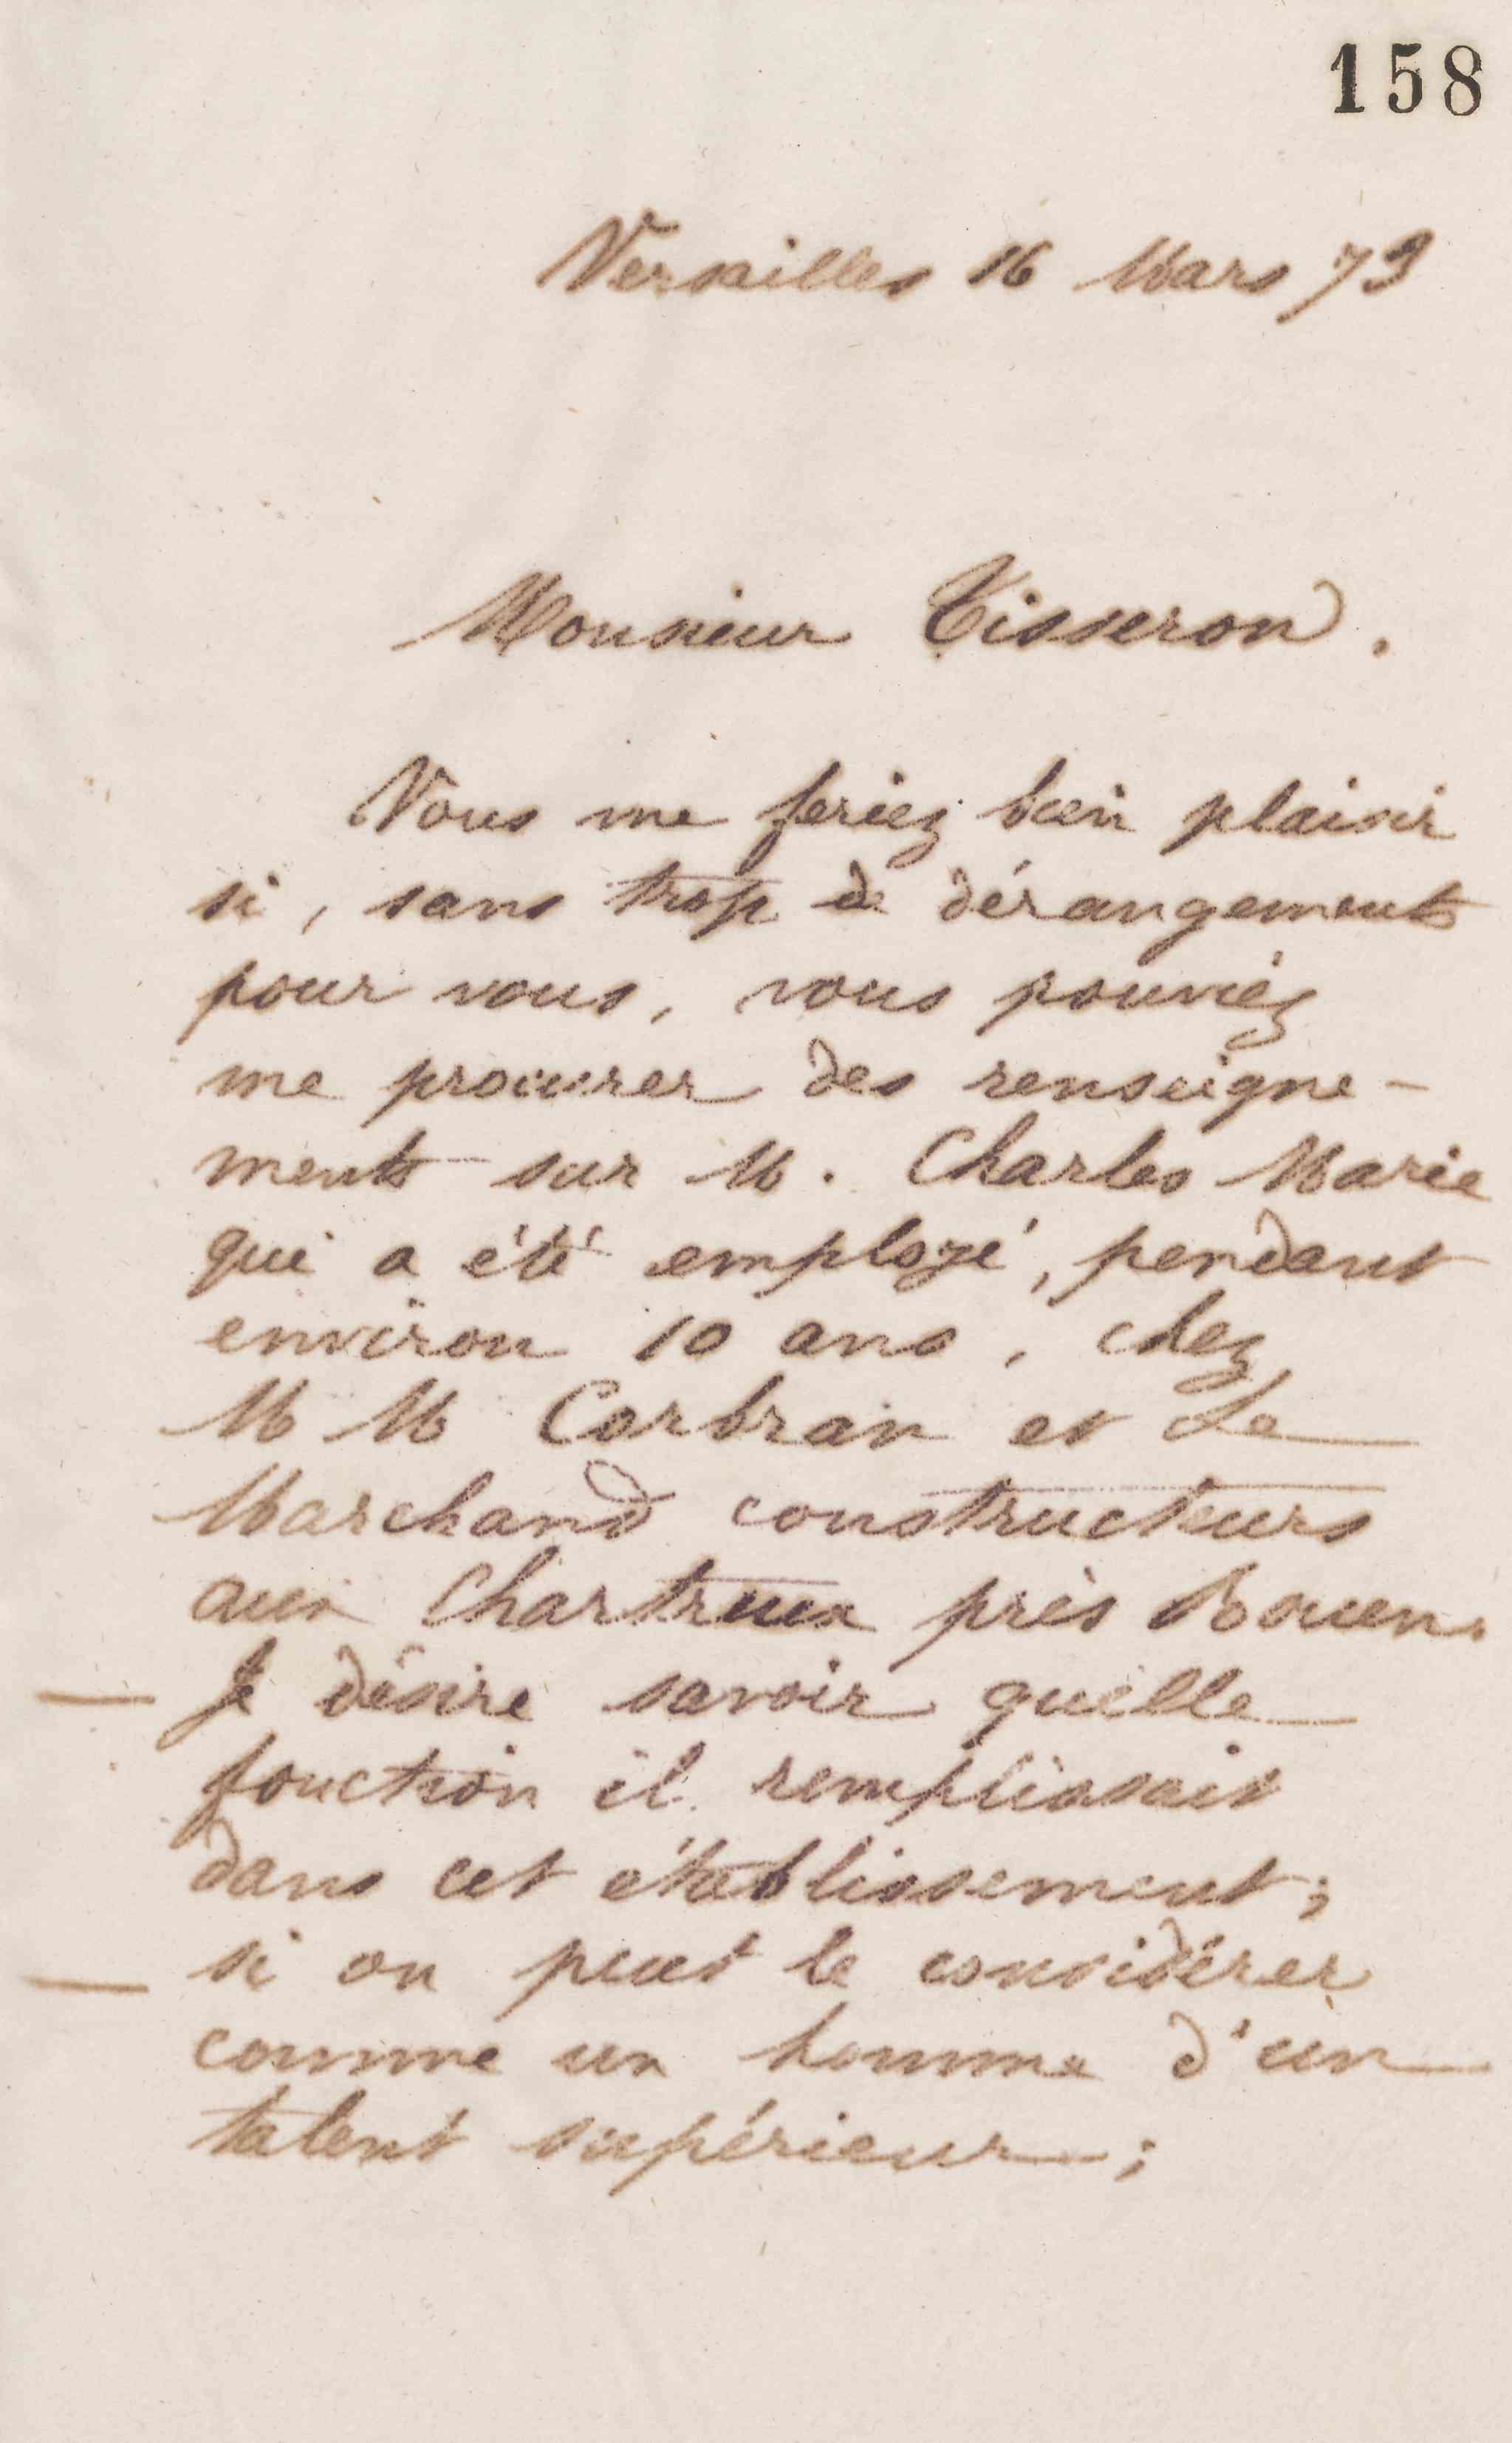 158
Versailles 16 Mars 73
Monsieur Tisseron.
Vous me feriez bien plaisir
si, sans trop de dérangement
pour vous, vous pouviez
me procurer des renseigne-
ments sur M. Charles Marie
qui a été employé, pendant
environ 10 ans, chez
MM Corbran et Le
Marchand constructeurs
aux Chartreux près Rouen.
— Je désire savoir quelle
fonction il remplissait
dans cet établissement;
— si on peut le considérer
comme un homme d'un
talent supérieur;